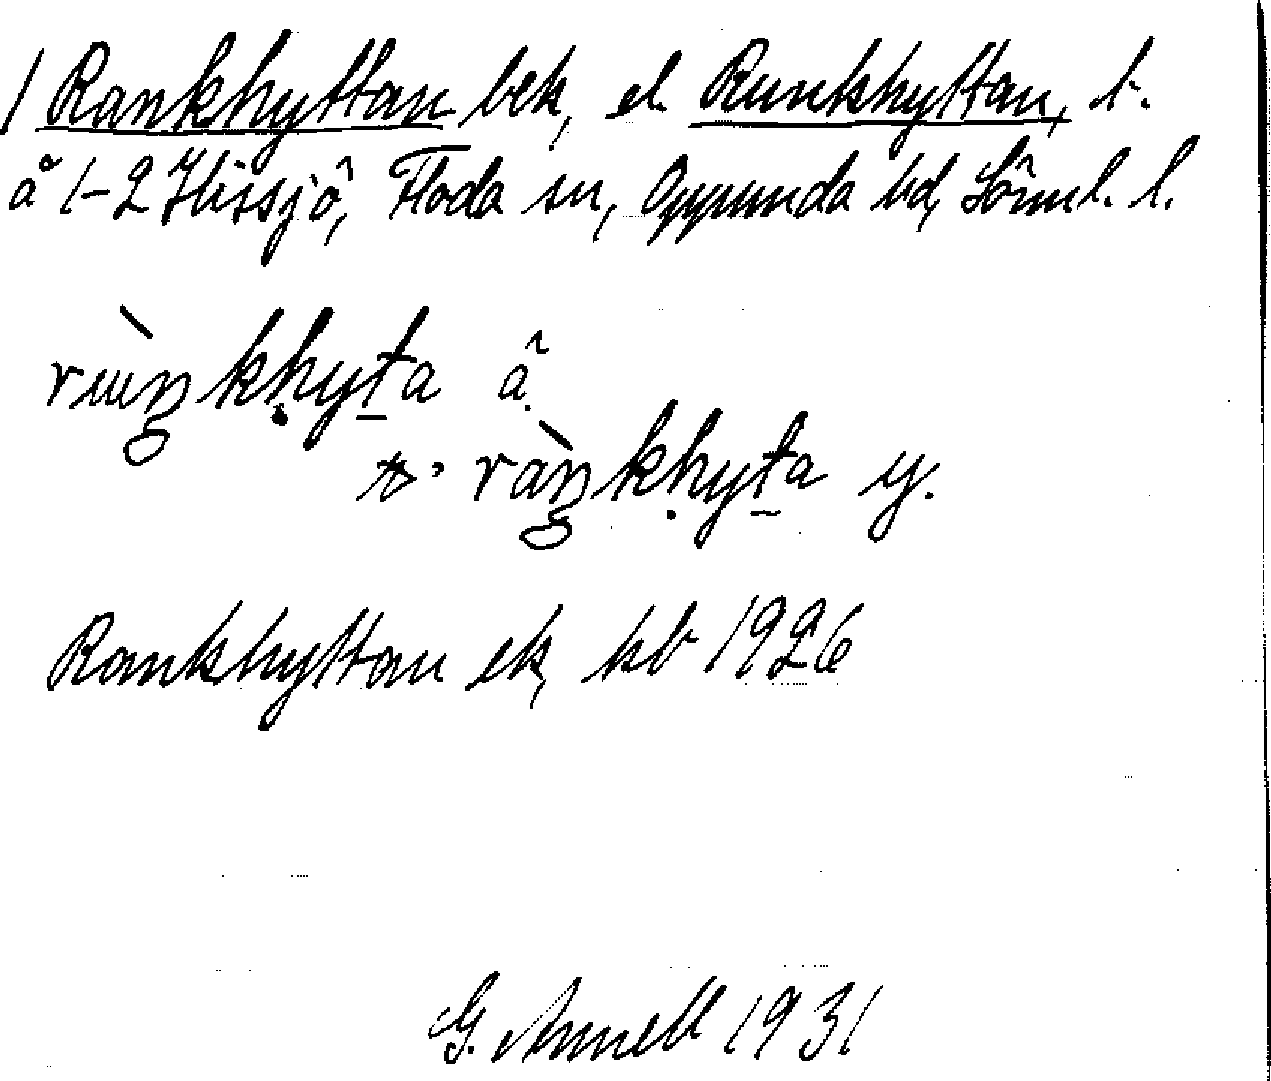 1 Rankhyttan bek, el. Runkhyttan, t.
å 1-2 Hissjö, Floda sn, Oppunda hd, Söml. l.
rùŋkhyta å.
ràŋkhyta y.
Rankhyttan ek, kb 1926
G. Annell 1931